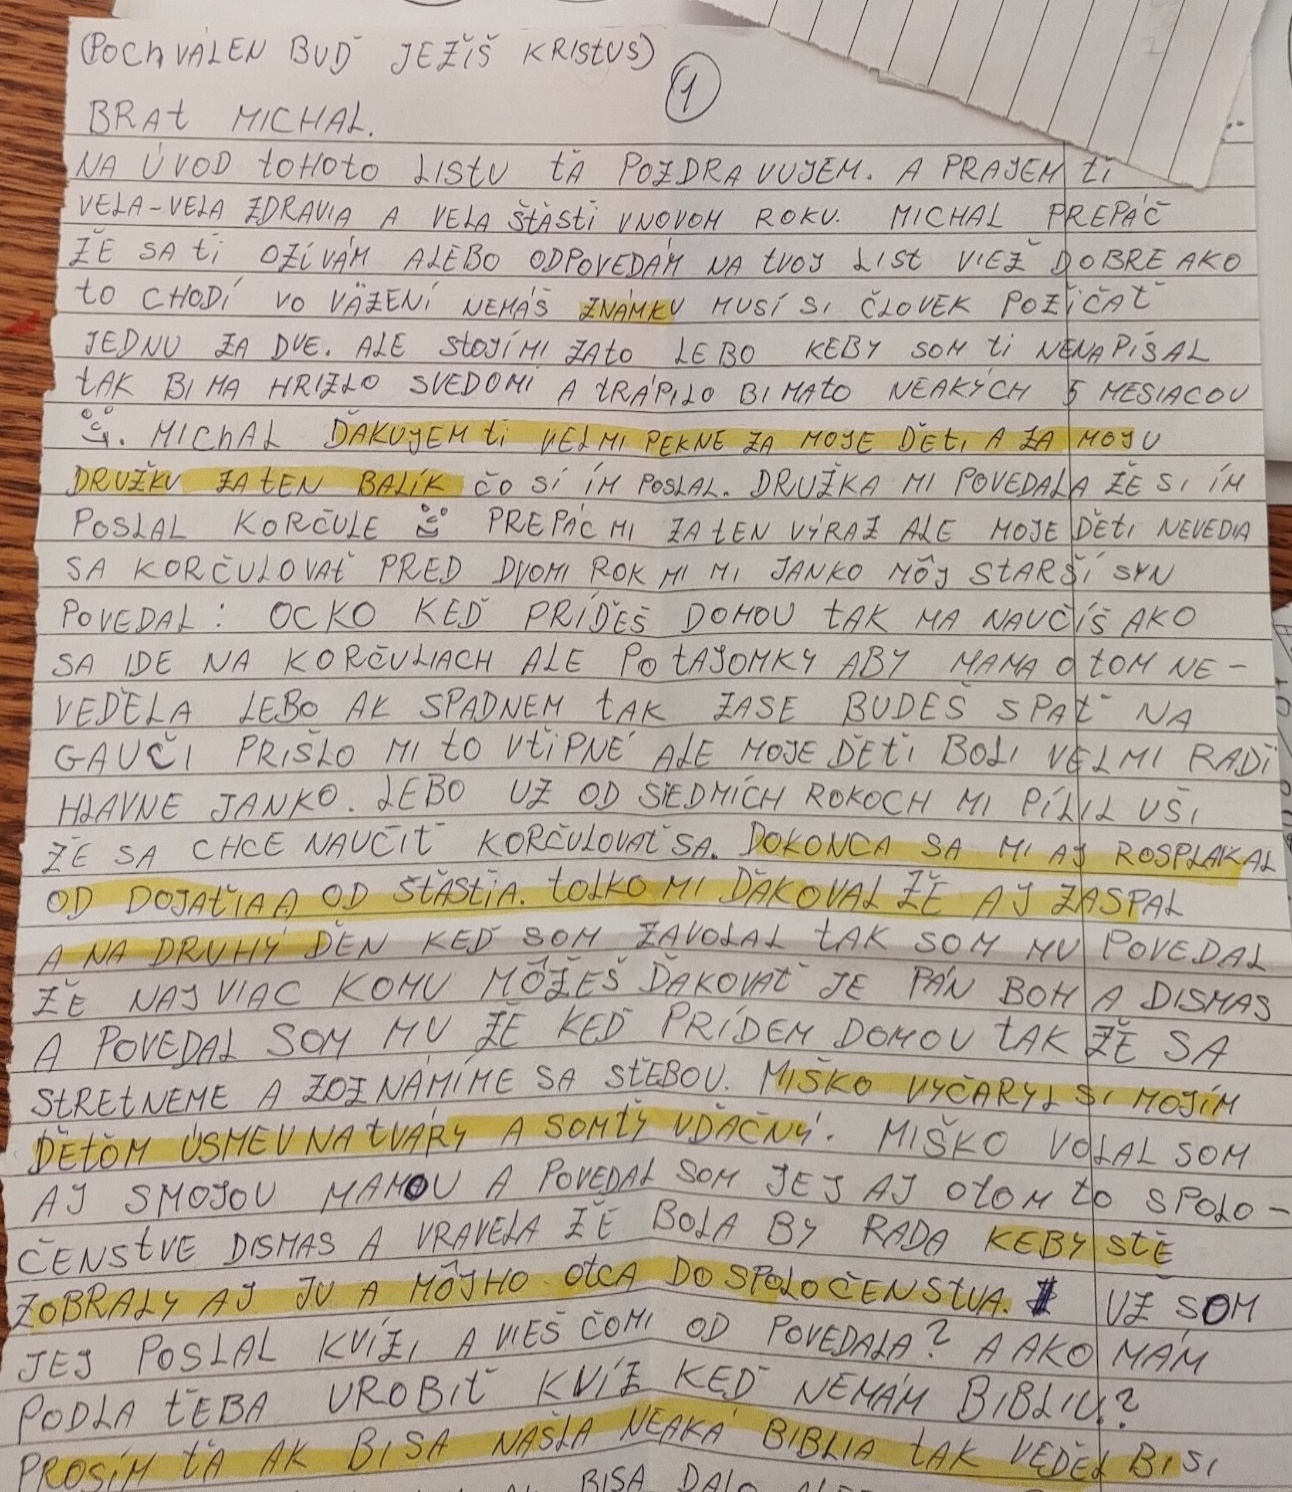 (POCHVÁLEN BUĎ JEŽÍŠ KRISTUS)
1
BRAT MICHAL.
NA ÚVOD TOHOTO LISTU ŤA POZDRAVUJEM. A PRAJEM TI
VELA-VELA ZDRAVIA A VELA ŠŤASTÍ VNOVOM ROKU. MICHAL PREPÁČ
ŽE SA TI OZÍVÁM ALEBO ODPOVEDÁM NA TVOJ LIST VIEŽ DOBRE AKO
TO CHODÍ VO VÄZENÍ NEMÁŠ ZNÁMKU MUSÍ SI ČLOVEK POŽIČAŤ
JEDNU ZA DVE. ALE STOJÍMI ZATO LEBO KEBY SOM TI NENAPÍSAL
TAK BI MA HRIZLO SVEDOMI A TRÁPILO BI MATO NEAKÝCH 5 MESIACOU
. MICHAL ĎAKUJEM TI VELMI PEKNE ZA MOJE ĎETI A ZA MOJU
DRUŽKU ZA TEN BALÍK ČO SI ÍM POSLAL. DRUŽKA MI POVEDALA ŽE SI ÍM
POSLAL KORČULE PREPÁC MI ZA TEN VÝRAZ ALE MOJE ĎETI NEVEDIA
SA KORČULOVAŤ PRED DVOMI ROKMI MI JANKO MÔJ STARŠÍ SYN
POVEDAL: OCKO KEĎ PRÍĎEŠ DOMOU TAK MA NAUČÍŠ AKO
SA IDE NA KORČULIACH ALE PO TAJOMKY ABY MAMA O TOM NE-
VEĎELA LEBO AK SPADNEM TAK ZASE BUDEŠ SPAŤ NA
GAUČI PRIŠLO MI TO VTIPNÉ ALE MOJE ĎETI BOLI VELMI RADI
HLAVNE JANKO. LEBO UZ OD SIEDMÍCH ROKOCH MI PÍLIL UŠI
ŽE SA CHCE NAUČIŤ KORČULOVAŤ SA. DOKONCA SA MI AJ ROSPLAKAL
OD DOJAŤIA A OD ŠŤASTIA. TOLKO MI ĎAKOVAL ŽE AJ ZASPAL
A NA DRUHÝ ĎEN KEĎ SOM ZAVOLAL TAK SOM MU POVEDAL
ŽE NAJVIAC KOMU MÔŽEŠ ĎAKOVAŤ JE PÁN BOH A DISMAS
A POVEDAL SOM MU ŽE KEĎ PRÍDEM DOMOU TAK ŽE SA
STRETNEME A ZOZNÁMÍME SA SŤEBOU. MIŠKO VYČARYL SI MOJÍM
ĎEŤOM ÚSMEV NA TVÁRY A SOMTI VĎAČNÝ. MIŠKO VOLAL SOM
AJ SMOJOU MAMOU A POVEDAL SOM JEJ AJ OTOM TO SPOLO-
ČENSTVE DISMAS A VRAVELA ŽE BOLA BY RADA KEBY STE
ZOBRALY AJ JU A MÔJHO OTCA DO SPOLOČENSTVA. UŽ SOM
JEJ POSLAL KVÍZ, A VIEŠ ČOMI OD POVEDALA? A AKO MÁM
PODLA ŤEBA UROBIŤ KVÍZ KEĎ NEMÁM BIBLIU?
PROSÍM ŤA AK BI SA NAŠLA NEAKÁ BIBLIA TAK VEĎEL BI SI
BISA DALO